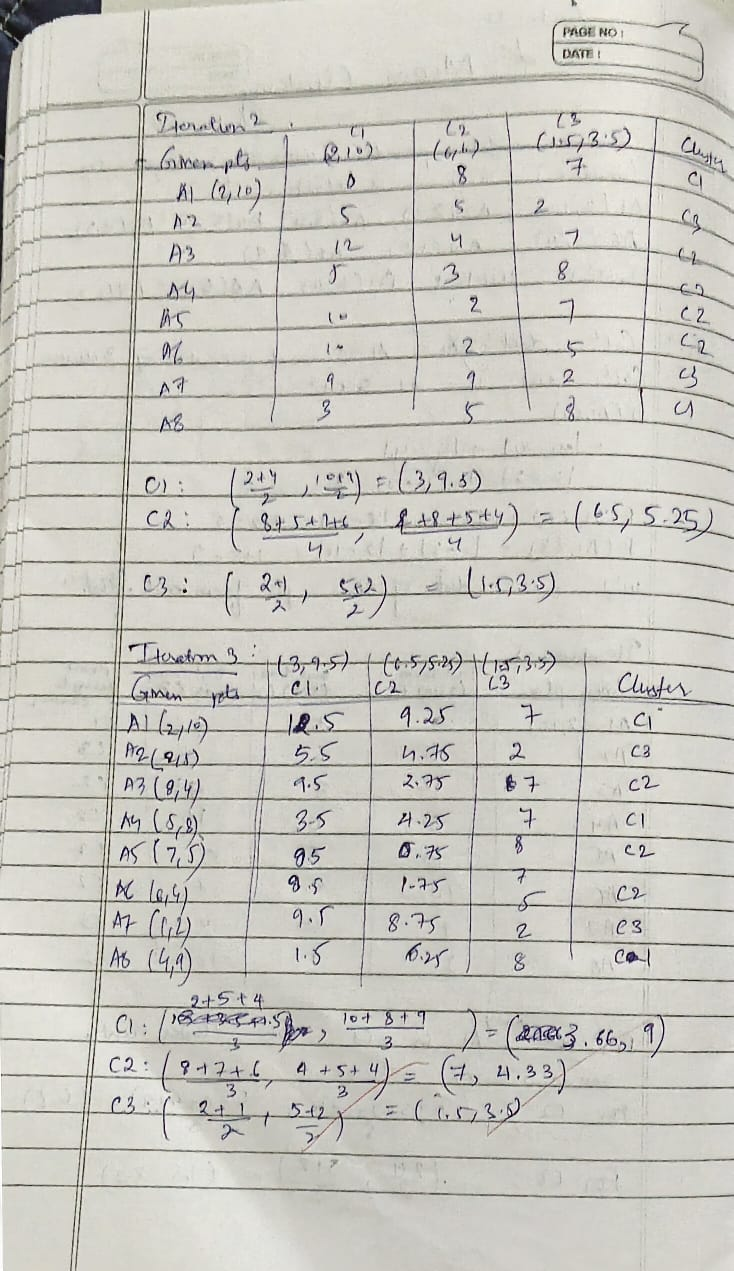 PAGE NO:
DATE:
Iteration 2
C1 C2 C3
Given pts (2,10) (6,6) (1.5,3.5) Cluster
A1 (2,10) 0 8 7 C1
A2 5 5 2 C3
A3 12 4 7 C2
A4 5 3 8 C2
A5 10 2 7 C2
A6 10 2 5 C2
A7 9 9 2 C3
A8 3 5 8 C1
C1: (2+4/2, 10+9/2) = (3, 9.5)
C2: (8+5+7+6/4, 4+8+5+4/4) = (6.5, 5.25)
C3: (2+1/2, 5+2/2) = (1.5, 3.5)
Iteration 3: (3,9.5) (6.5,5.25) (1.5,3.5)
Given pts C1 C2 C3 Cluster
A1 (2,10) 1.5 9.25 7 C1
A2 (2,5) 5.5 4.75 2 C3
A3 (8,4) 9.5 2.75 7 C2
A4 (5,8) 3.5 4.25 7 C1
A5 (7,5) 8.5 0.75 8 C2
A6 (6,4) 8.5 1.75 7 C2
5
A7 (1,2) 9.5 8.75 2 C3
A8 (4,9) 1.5 6.25 8 C1
C1: (2+5+4/3, 10+8+9/3) = (3.66, 9)
C2: (8+7+6/3, 4+5+4/3) = (7, 4.33)
C3: (2+1/2, 5+2/2) = (1.5, 3.5)